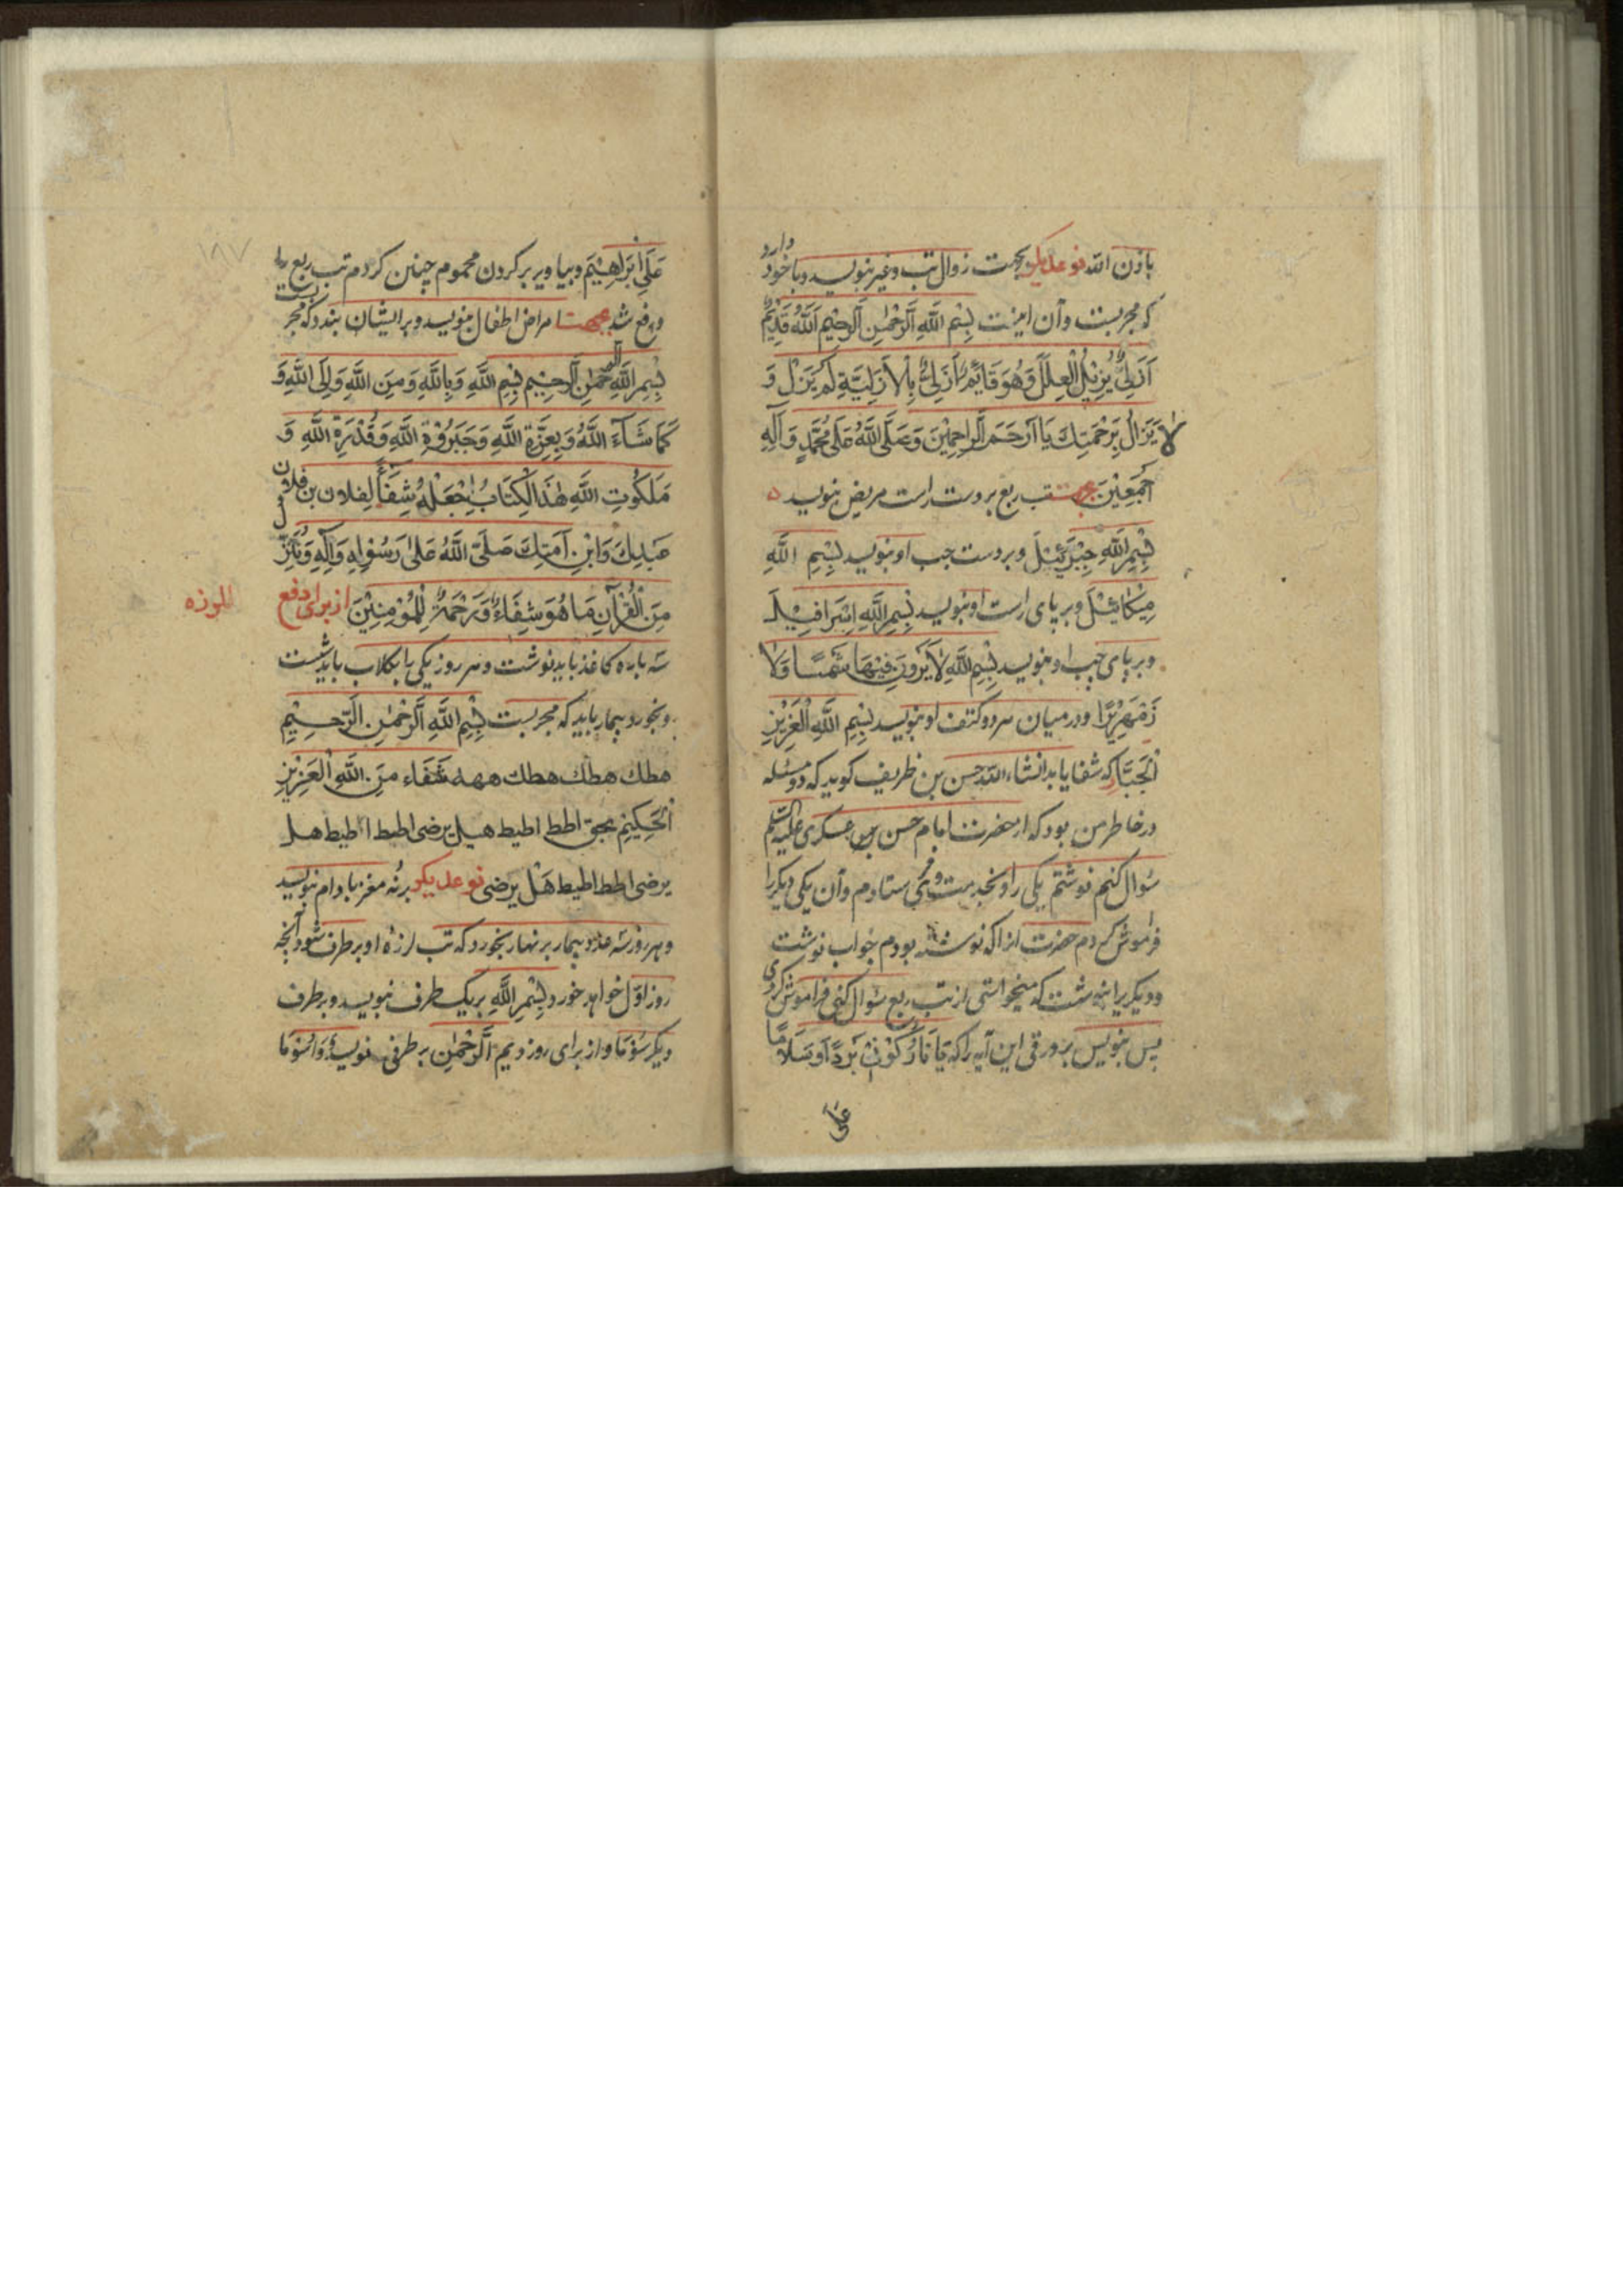 باذن الله نوعدیگر بجهت زوال تب وغیر بنویسد وباخود دارد
که مجربست وآن اینست بِسْمِ اللَّهِ الرَّحْمٰنِ الرَّحِيْمِ اَللَّهُ قَدِيْمٌ
اَزَلِيٌّ يُزِيْلُ الْعِلَلَ وَهُوَ قَائِمٌ اَزَلِيٌّ بِالْاَزَلِيَّةِ لَمْ يَزَلْ وَ
لَا يَزَالُ بِرَحْمَتِكَ يَا اَرْحَمَ الرَّاحِمِيْنَ وَصَلَّى اللَّهُ عَلَى مُحَمَّدٍ وَآلِهِ
اَجْمَعِيْنَ بجهت تب ربع بردست راست مریض بنویسد
بِسْمِ اللَّهِ جِبْرَئِيْلَ وبردست چپ او بنویسد بِسْمِ اللَّهِ
مِيْكَائِيْلَ وبر پای راست او بنویسد بِسْمِ اللَّهِ اِسْرَافِيْلَ
وبر پای چپ او بنویسد بِسْمِ اللَّهِ لَا يَرَوْنَ فِيْهَا شَمْسًا وَلَا
زَمْهَرِيْرًا ودر میان هردو کتف او بنویسد بِسْمِ اللَّهِ الْعَزِيْزِ
الْجَبَّارِ که شفا یابد انشاء الله حسن بن ظریف کوید که دو مسئله
در خاطر من بود که از حضرت امام حسن عسکری علیه السلم
سؤال کنم نوشتم یکی را وبخدمت وی فرستادم وآن یکی دیکررا
فراموش کردم حضرت انرا که نوشته بودم جواب نوشت
ودیکر برا نوشت که میخواستی از تب ربع سؤال کنی فراموش کردی
پس بنویس برورقی این آیه را که يَا نَارُ كُوْنِيْ بَرْدًا وَسَلَامًا
عَلَى
١٨٧
عَلَى اِبْرَاهِيْمَ وبیاویز بر کردن محموم چنین کردم تب ربع
ودفع شد بجهت امراض اطفال بنویسد وبرایشان بندد که مجربست
بِسْمِ اللَّهِ الرَّحْمٰنِ الرَّحِيْمِ بِسْمِ اللَّهِ وَبِاللَّهِ وَمِنَ اللَّهِ وَاِلَى اللَّهِ وَ
كَمَا شَآءَ اللَّهُ وَبِعِزَّةِ اللَّهِ وَجَبَرُوْةِ اللَّهِ وَقُدْرَةِ اللَّهِ وَ
مَلَكُوْتِ اللَّهِ هٰذَا الْكِتَابُ اِجْعَلْهُ شِفَاءً لِفلان بن فلان
عَبْدِكَ وَابْنِ اَمَتِكَ صَلَّى اللَّهُ عَلَى رَسُوْلِهِ وَآلِهِ وَنُنَزِّلُ
مِنَ الْقُرْآنِ مَا هُوَ شِفَاءٌ وَرَحْمَةٌ لِلْمُؤْمِنِيْنَ از برای دفع
سه پاره کاغذ باید نوشت وهر روز یکی با بکلاب باید شست
وبخورد بیمار باید که مجربست بِسْمِ اللَّهِ الرَّحْمٰنِ الرَّحِيْمِ
هطك هطك هطك ههه شَفَاء مِنَ اللَّهِ الْعَزِيْزِ
الْحَكِيْمِ بحق اطط اطیط هیل یرضی اطط اطیط هل
یرضی اطط اطیط هَلْ یرضی نوعدیکر بر نُه مغز بادام بنویسد
وهر روز سه عدد بیمار بر نهار بخورد که تب لرزهٔ او برطرف شود آنچه
روز اوّل خواهد خورد بِسْمِ اللَّهِ بر یک طرف نبویسد وبرطرف
دیکر سُوْمَا واز برای روز دیم الرَّحْمٰنِ بر طرفی نویسد وَاسُوْمَا